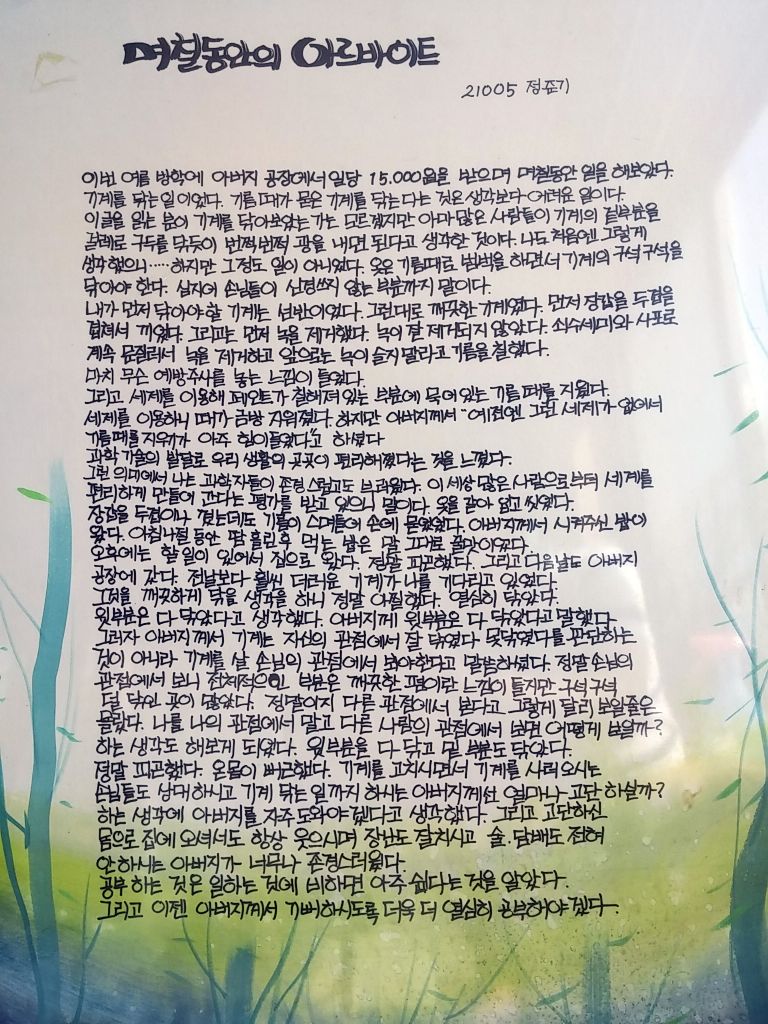 며칠동안의 아르바이트
21005 정준기
이번 여름 방학에 아버지 공장에서 일당 15.000원을 받으며 며칠동안 일을 해보았다.
기계를 닦는 일이었다. 기름때가 묻은 기계를 닦는다는 것은 생각보다 어려운 일이다.
이글을 읽는 분이 기계를 닦아보았는가는 모르겠지만 아마 많은 사람들이 기계의 겉부분을
걸레로 구두를 닦듯이 번쩍번쩍 광을 내면 된다고 생각한 것이다. 나도 처음엔 그렇게
생각했으니..... 하지만 그정도 일이 아니었다. 옷은 기름때로 범벅을 하면서 기계의 구석구석을
닦아야 한다. 심지어 손님들이 신경쓰지 않는 부분까지 말이다.
내가 먼저 닦아야 할 기계는 선반이었다. 그런대로 깨끗한 기계였다. 먼저 장갑을 두겹을
겹쳐서 끼었다. 그리고는 먼저 녹을 제거했다. 녹이 잘 제거되지 않았다. 쇠수세미와 사포로
계속 문질러서 녹을 제거하고 앞으로는 녹이 슬지 말라고 기름을 칠했다.
마치 무슨 예방주사를 놓는 느낌이 들었다.
그리고 세제를 이용해 페인트가 칠해져 있는 부분에 묵어있는 기름때를 지웠다.
세제를 이용하니 때가 금방 지워졌다. 하지만 아버지께서 "예전엔 그런 세제가 없어서
기름때를 지우기가 아주 힘이들었다"고 하셨다
과학 기술의 발달로 우리 생활의 곳곳이 편리해졌다는 것을 느꼈다.
그런 의미에서 나는 과학자들이 존경스럽고도 부러웠다. 이 세상 많은 사람으로부터 세계를
편리하게 만들어 간다는 평가를 받고 있으니 말이다. 옷을 갈아 입고 씻었다.
장갑을 두겹이나 꼈는데도 기름이 스며들어 손에 묻었었다. 아버지께서 시켜주신 밥이
왔다. 아침나절 동안 땀 흘린후 먹는 밥은 말 그대로 꿀맛이었다.
오후에는 할 일이 있어서 집으로 왔다. 정말 피곤했다. 그리고 다음날도 아버지
공장에 갔다. 전날보다 훨씬 더러운 기계가 나를 기다리고 있었다.
그것을 깨끗하게 닦을 생각을 하니 정말 아찔했다. 열심히 닦았다.
윗부분은 다 닦았다고 생각했다. 아버지께 윗부분은 다 닦았다고 말했다
그러자 아버지께서 기계는 자신의 관점에서 잘 닦였다 못닦였다를 판단하는
것이 아니라 기계를 살 손님의 관점에서 보아야한다고 말씀하셨다. 정말 손님의
관점에서 보니 전체적으인 부분은 깨끗한 편이란 느낌이 들지만 구석구석
덜 닦인 곳이 많았다. 정말이지 다른 관점에서 본다고 그렇게 달리 보일줄은
몰랐다. 나를 나의 관점에서 말고 다른 사람의 관점에서 보면 어떻게 보일까?
하는 생각도 해보게 되었다. 윗부분을 다 닦고 밑 부분도 닦았다.
정말 피곤했다. 온몸이 뻐근했다. 기계를 고치시면서 기계를 사러오시는
손님들도 상대하시고 기계 닦는 일까지 하시는 아버지께선 얼마나 고단하실까?
하는 생각에 아버지를 자주 도와야겠다고 생각했다. 그리고 고단하신
몸으로 집에 오셔서도 항상 웃으시며 장난도 잘치시고 술.담배도 전혀
안하시는 아버지가 너무나 존경스러웠다.
공부 하는 것은 일하는 것에 비하면 아주 쉽다는 것을 알았다.
그리고 이젠 아버지께서 기뻐하시도록 더욱 더 열심히 공부해야 겠다.